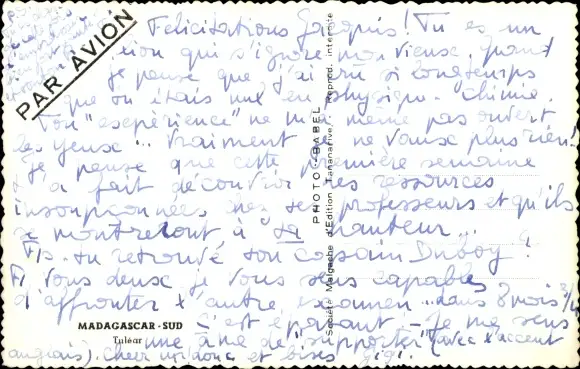 PAR AVION
Félicitations Jacquis! Tu es un
qui s'ignore mon vieux, quand
je pense que j'ai cru si longtemps
que tu étais nul en physique-chimie.
Ton "expérience" ne m'a même pas ouvert
les yeux... Vraiment je ne vaux plus rien!
Je pense que cette première semaine
t'a fait découvrir des ressources
insoupçonnées chez tes professeurs et qu'ils
se montreront à ta hauteur...
As-tu retrouvé ton copain Duboy?
À vous deux je vous sens capables
d'affronter l'autre examen dans 8 mois
C'est épatant - Je me sens
une âme de "supporter" (avec l'accent
anglais). Cheer up donc et bises
PHOTO "BABEL"
Société Malgache d'Edition Tananarive. Reprod. interdite
MADAGASCAR-SUD
Tuléar